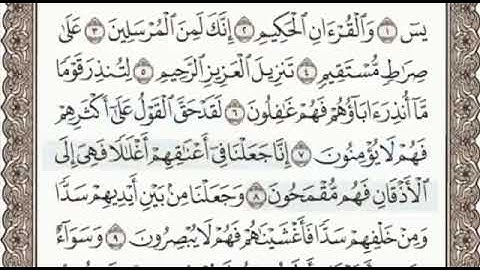 يسٓ ١ وَٱلْقُرْءَانِ ٱلْحَكِيمِ ٢ إِنَّكَ لَمِنَ ٱلْمُرْسَلِينَ ٣ عَلَىٰ
صِرَٰطٍ مُّسْتَقِيمٍ ٤ تَنزِيلَ ٱلْعَزِيزِ ٱلرَّحِيمِ ٥ لِتُنذِرَ قَوْمًا
مَّآ أُنذِرَ ءَابَآؤُهُمْ فَهُمْ غَٰفِلُونَ ٦ لَقَدْ حَقَّ ٱلْقَوْلُ عَلَىٰٓ أَكْثَرِهِمْ
فَهُمْ لَا يُؤْمِنُونَ ٧ إِنَّا جَعَلْنَا فِىٓ أَعْنَٰقِهِمْ أَغْلَٰلًا فَهِىَ إِلَى
ٱلْأَذْقَانِ فَهُم مُّقْمَحُونَ ٨ وَجَعَلْنَا مِنۢ بَيْنِ أَيْدِيهِمْ سَدًّا
وَمِنْ خَلْفِهِمْ سَدًّا فَأَغْشَيْنَٰهُمْ فَهُمْ لَا يُبْصِرُونَ ٩ وَسَوَآءٌ